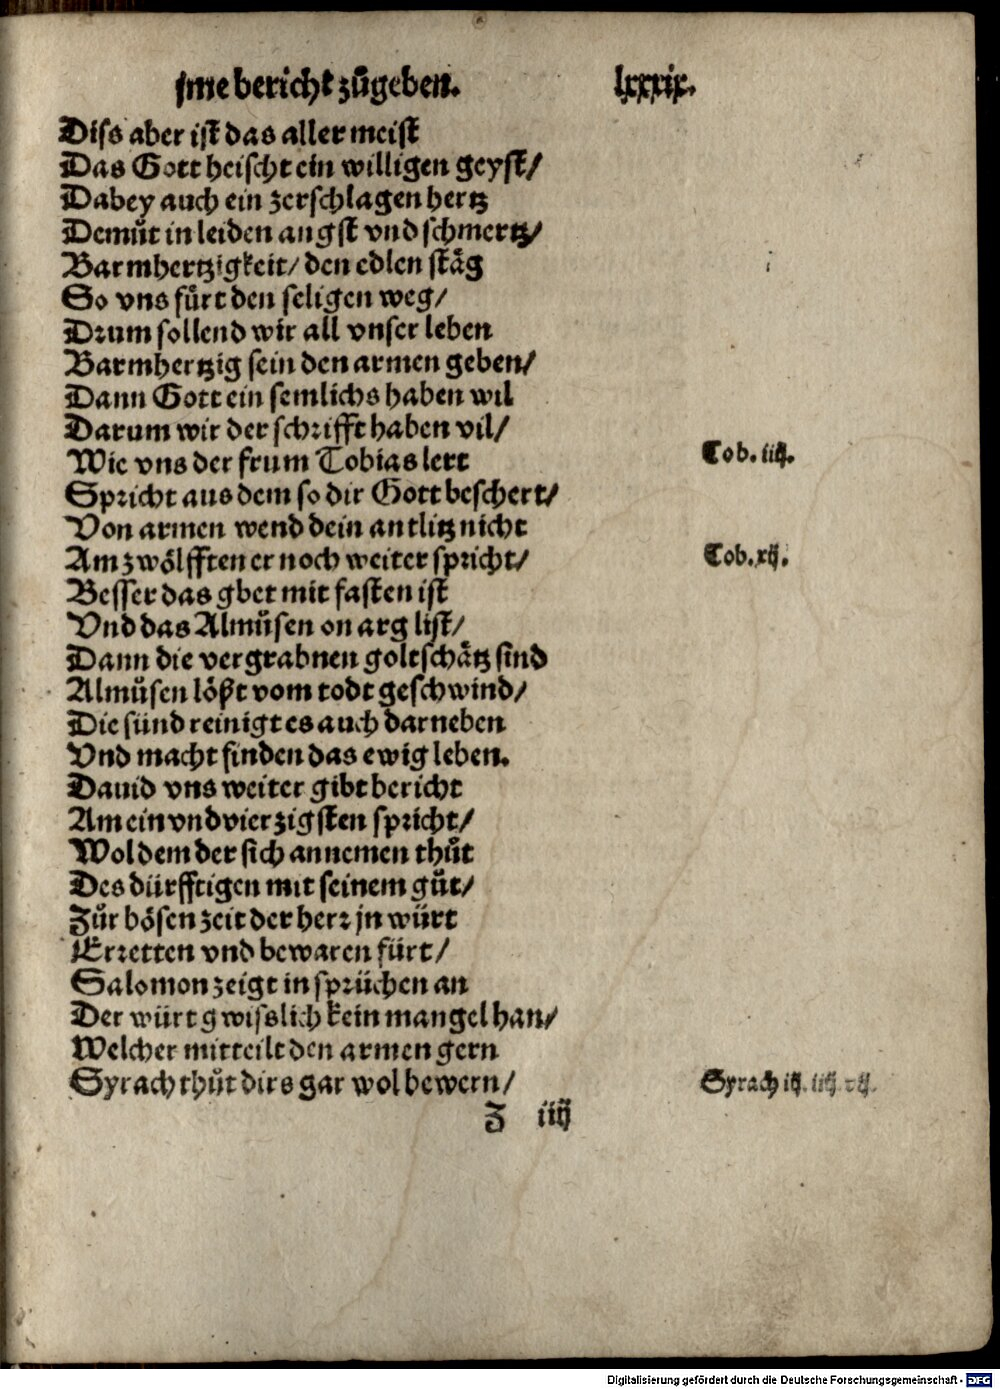 jme bericht zůgeben. lxxxix.
Diss aber ist das aller meist
Das Gott heischt ein willigen geyst/
Dabey auch ein zerschlagen hertz
Demůt in leiden angst vnd schmertz/
Barmhertzigkeit/ den edlen stäg
So vns fůrt den seligen weg/
Drum sollend wir all vnser leben
Barmhertzig sein den armen geben/
Dann Gott ein semlichs haben wil
Darum wir der schrifft haben vil/
Wie vns der frum Tobias lert Tob. iiij.
Spricht aus dem so dir Gott beschert/
Von armen wend dein antlitz nicht
Am zwölfften er noch weiter spricht/ Tob. xij.
Besser das gbet mit fasten ist
Vnd das Almůsen on arg list/
Dann die vergrabnen goltschätz sind
Almůsen lößt vom todt geschwind/
Die sünd reinigt es auch darneben
Vnd macht finden das ewig leben.
Dauid vns weiter gibt bericht
Am ein vnd vierzigsten spricht/
Wol dem der sich annemen thůt
Des dürfftigen mit seinem gůt/
Zůr bösen zeit der herr jn würt
Erretten vnd bewaren fürt/
Salomon zeigt in sprüchen an
Der würt gwisslich kein mangel han/
Welcher mitteilt den armen gern
Syrach thůt dirs gar wol bewern/ Syrach iij. iiij. xij.
Z iiij
Digitalisierung gefördert durch die Deutsche Forschungsgemeinschaft - DFG